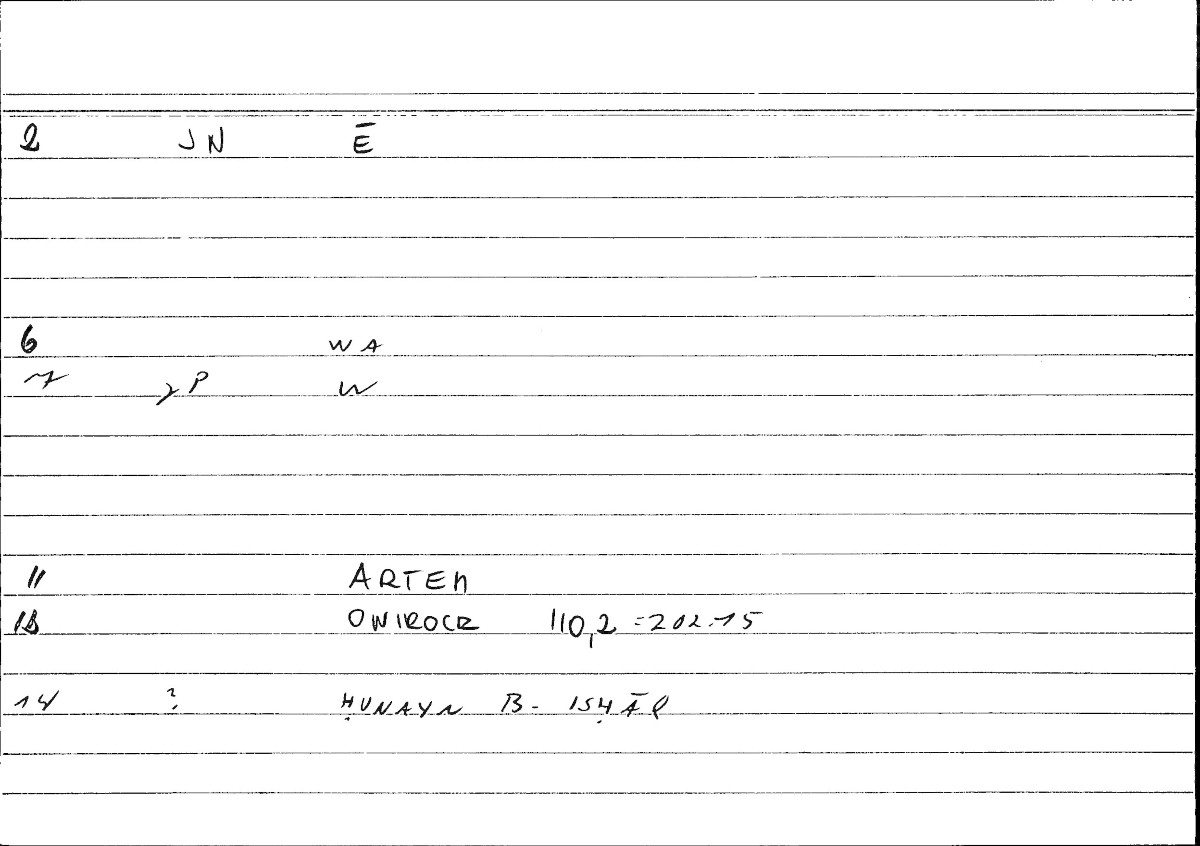 2 JN Ē
6 WA
7 P W
11 ARTEM
ONIROCR 110,2 = 202.15
14 ? ḤUNAYN B. ISḤĀQ